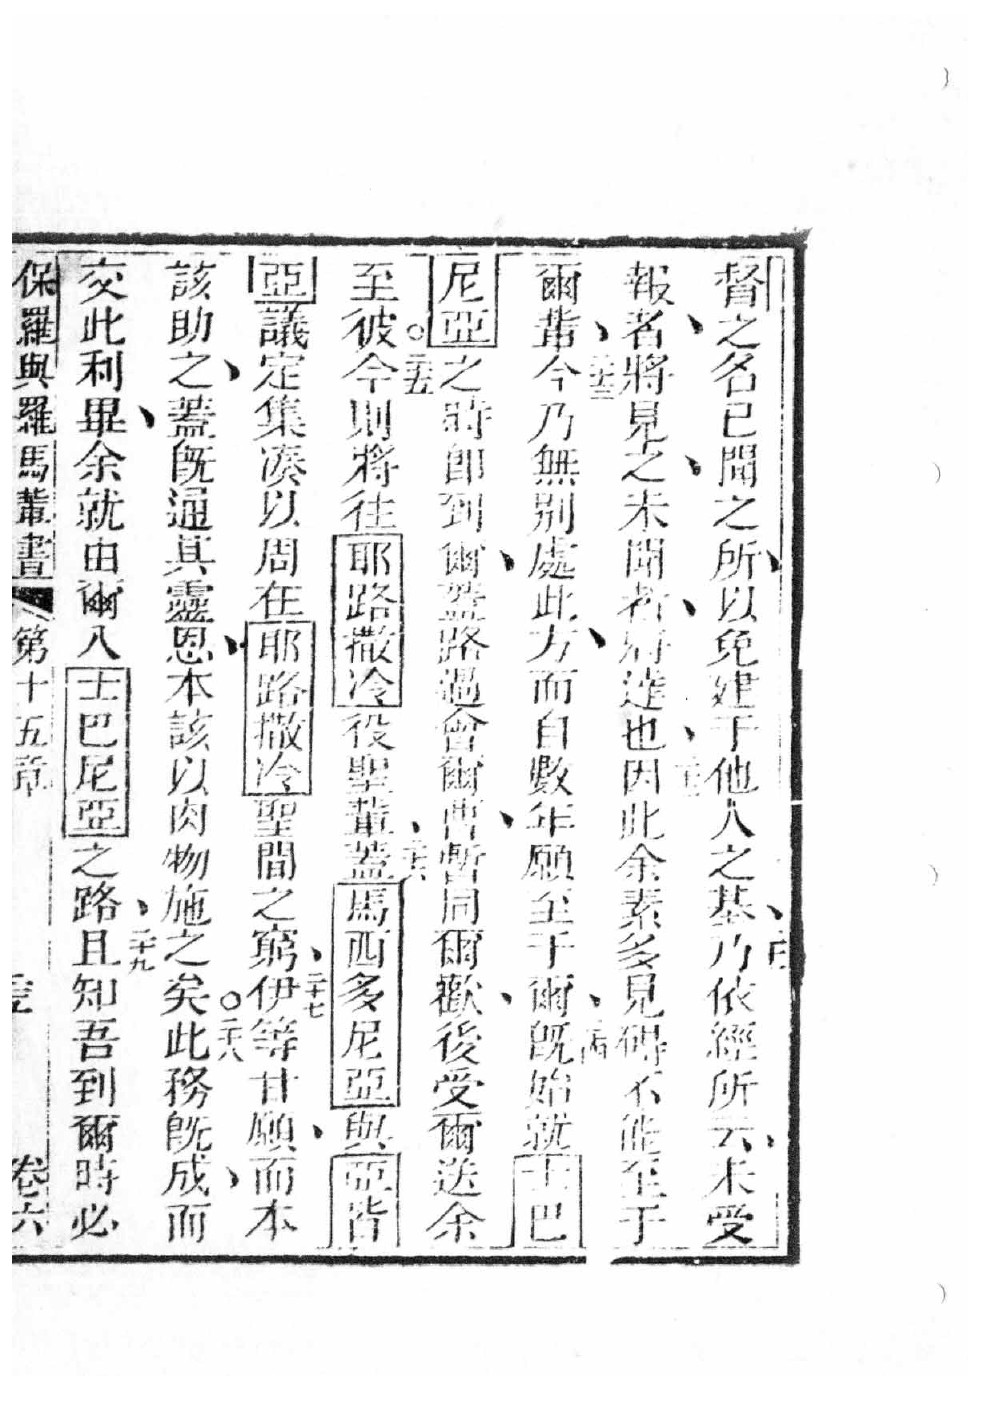 督之名已聞之所以免建于他人之基二十一乃依經所云未受
報者將見之未聞者將達也二十二因此余素多見碍不能至于
爾輩二十三今乃無別處此方而自數年願至于爾二十四旣始就士巴
尼亞之時卽到爾盖路過會爾曹暫同爾歡後受爾送余
至彼○二十五今則將往耶路撒冷役聖輩二十六蓋馬西多尼亞與亞皆
亞議定集凑以周在耶路撒冷聖間之窮二十七伊等甘願而本
該助之蓋旣通其靈恩本該以肉物施之矣○二十八此務旣成而
交此利畢余就由爾入士巴尼亞之路二十九且知吾到爾時必
保羅與羅馬輩書 第十五章 卷六